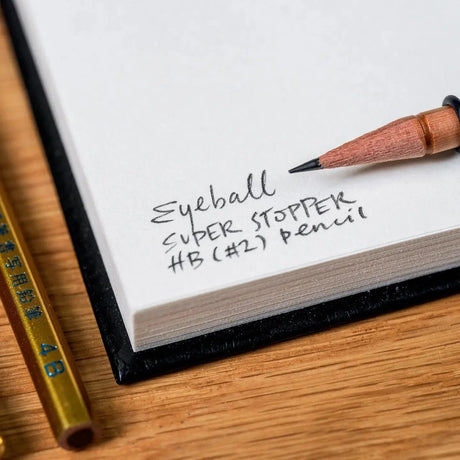 Eyeball
SUPER STOPPER
HB (#2) pencil
4B